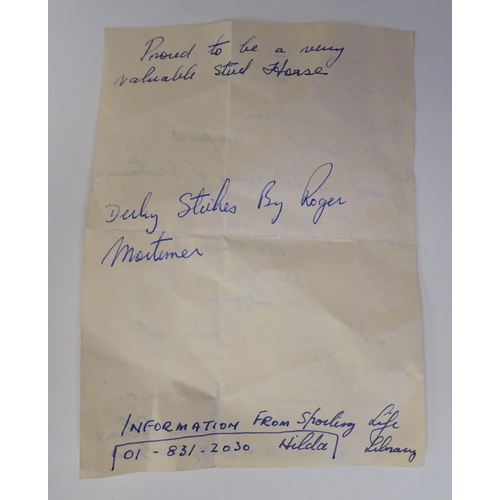 Proud to be a very
valuable stud Horse
Derby Stakes By Roger
Mortimer
INFORMATION FROM Sporting Life
01-831-2030 Hilda Library